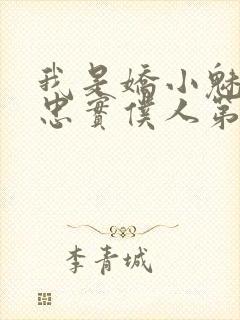 我是嬌小魅
忠實僕人第
李青城